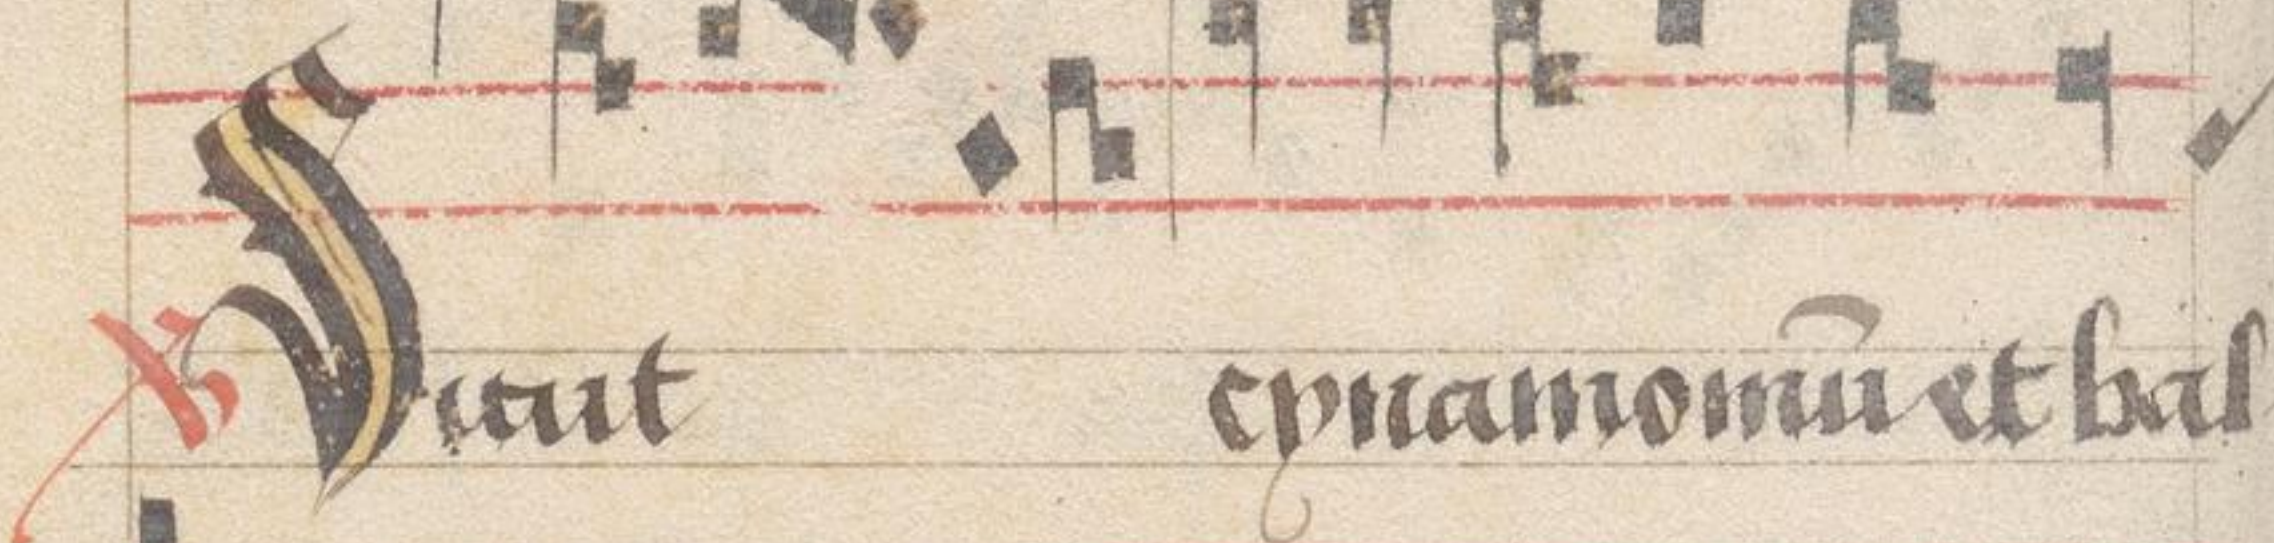 ℟ Sicut cynamomū et bal